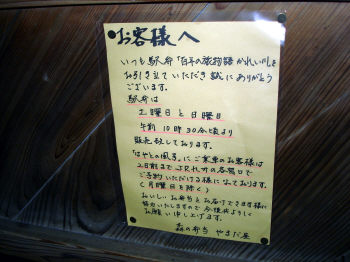 お客様へ
いつも駅弁「百年の旅物語かれい川」を
お引き立ていただき誠にありがとう
ございます。
駅弁は
土曜日と日曜日
午前10時30分頃より
販売致しております。
「はやとの風」にご乗車のお客様は
2日前までJR九州の各駅で
ご予約いただける様になっております。
(月曜日を除く)
おいしいお弁当をお届けできます様に
努力いたしますので今後共よろしく
お願い申し上げます。
森の弁当 やまだ屋